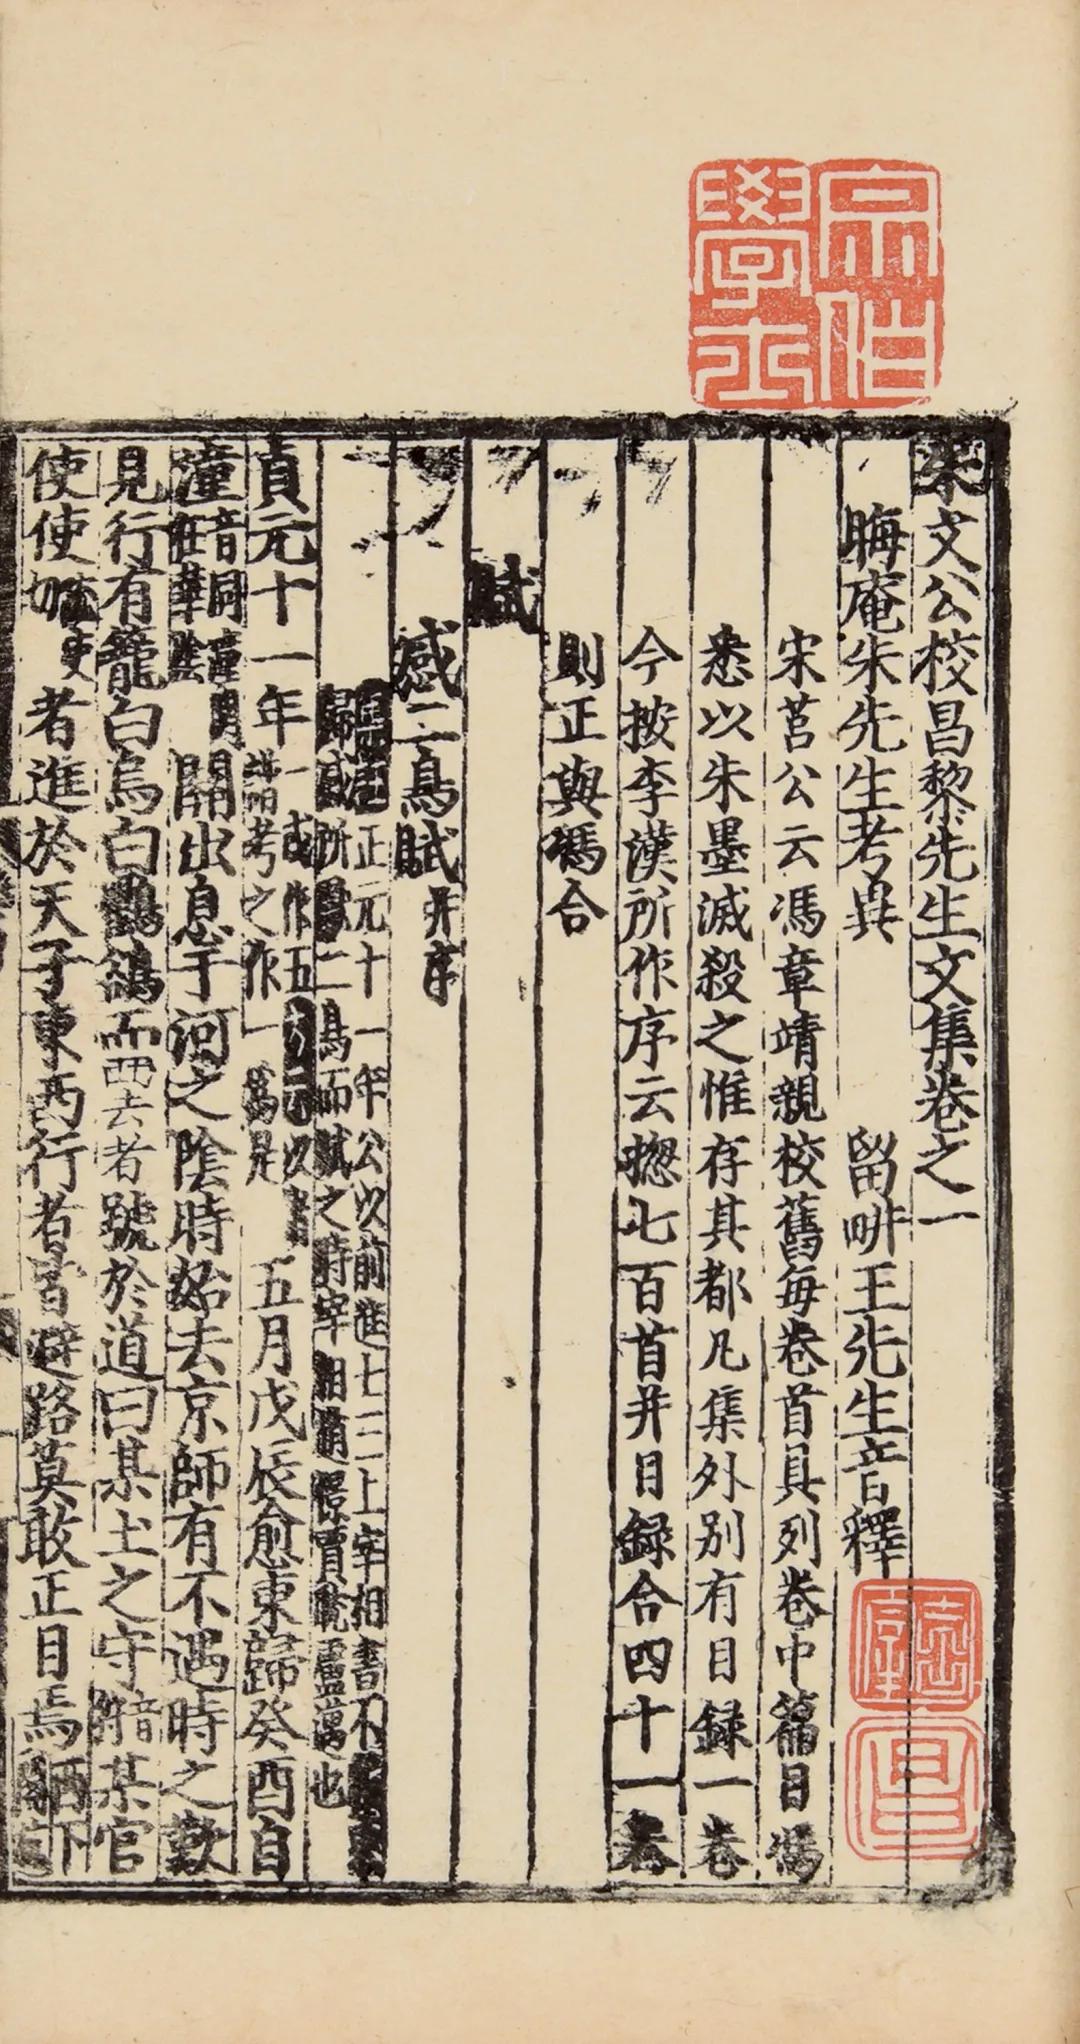 朱文公校昌黎先生文集卷之一
晦庵朱先生考異 留畊王先生音釋
宋莒公云馮章靖親校舊每卷首具列卷中篇目馮
悉以朱墨滅殺之惟存其都凡集外別有目録一卷
今按李漢所作序云揔七百首并目録合四十一卷
則正與馮合
賦
感二鳥賦并序
正元十一年公以前進士三上宰相書不
歸感所見二鳥而賦之時宰相趙憬賈耽盧邁也
貞元十一年
一或作五
諸考之作一為是
五月戊辰愈東歸癸酉自
潼
音同潼
在華陰
關出息于河之陰時始去京師有不遇時之歎
見行有籠白烏白鸜鵒而西去者號於道曰某土之守某官
使使
者進於天子東西行者皆避路莫敢正目焉
宗伯學士